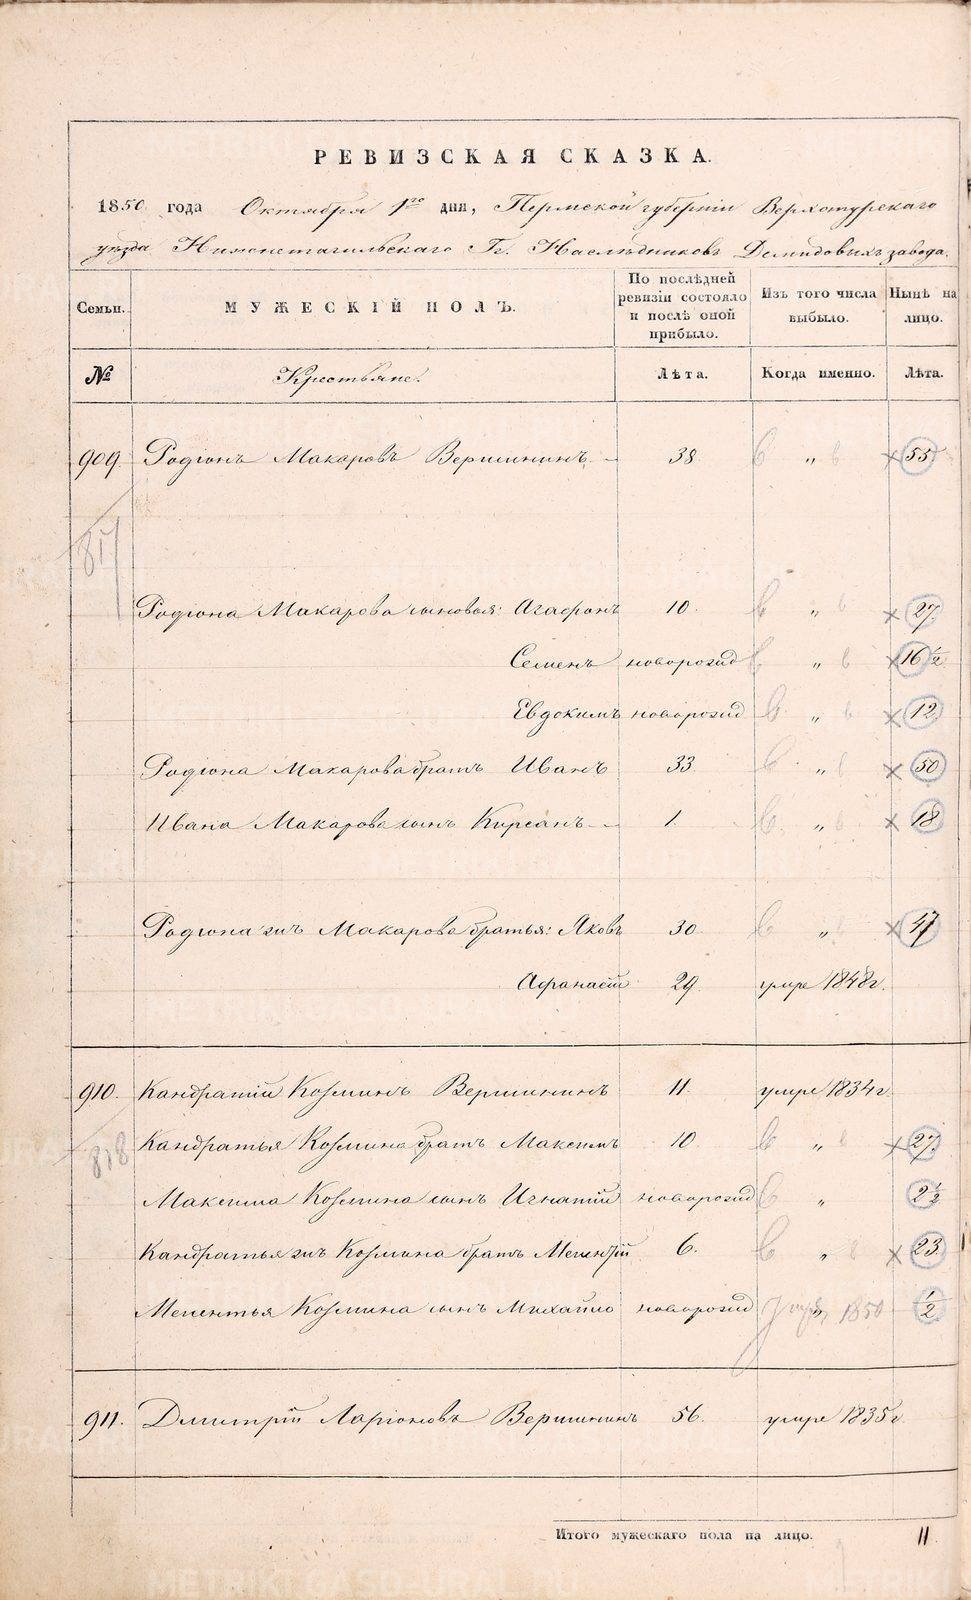 РЕВИЗСКАЯ СКАЗКА.
1850 года Октября 1го дня, Пермской губерніи Верхотурскаго
уѣзда Нижнетагильскаго Гг. Наслѣдниковъ Демидовыхъ завода.
Семьи. МУЖЕСКІЙ ПОЛЪ. По послѣдней ревизіи состояло и послѣ оной прибыло. Изъ того числа выбыло. Нынѣ на лицо.
№ Крестьяне. Лѣта. Когда именно. Лѣта.
909. Родіонъ Макаровъ Вершининъ 38. „ 55
817
Родіона Макарова сыновья: Агафонъ 10. „ 27.
Семенъ новорожд „ 16 1/2
Евдокимъ новорожд „ 12
Родіона Макарова братъ Иванъ 33 „ 50
Ивана Макарова сынъ Кирсанъ 1. „ 18
Родіона жъ Макарова братья: Яковъ 30. „ 47
Афанасій 29 умре 1848 г.
910. Кандратій Козминъ Вершининъ 11. умре 1834 г
818
Кандратья Козмина братъ Максимъ 10. „ 27.
Максима Козмина сынъ Игнатій новорожд „ 2 1/2
Кандратья жъ Козмина братъ Мелентій 6. „ 23
Мелентья Козмина сынъ Михайло новорожд „ умре 1850 1/2
911. Дмитрій Ларіоновъ Вершининъ 56. умре 1835 г.
Итого мужескаго пола на лицо. 11
METRIKI.GASO-URAL.RU